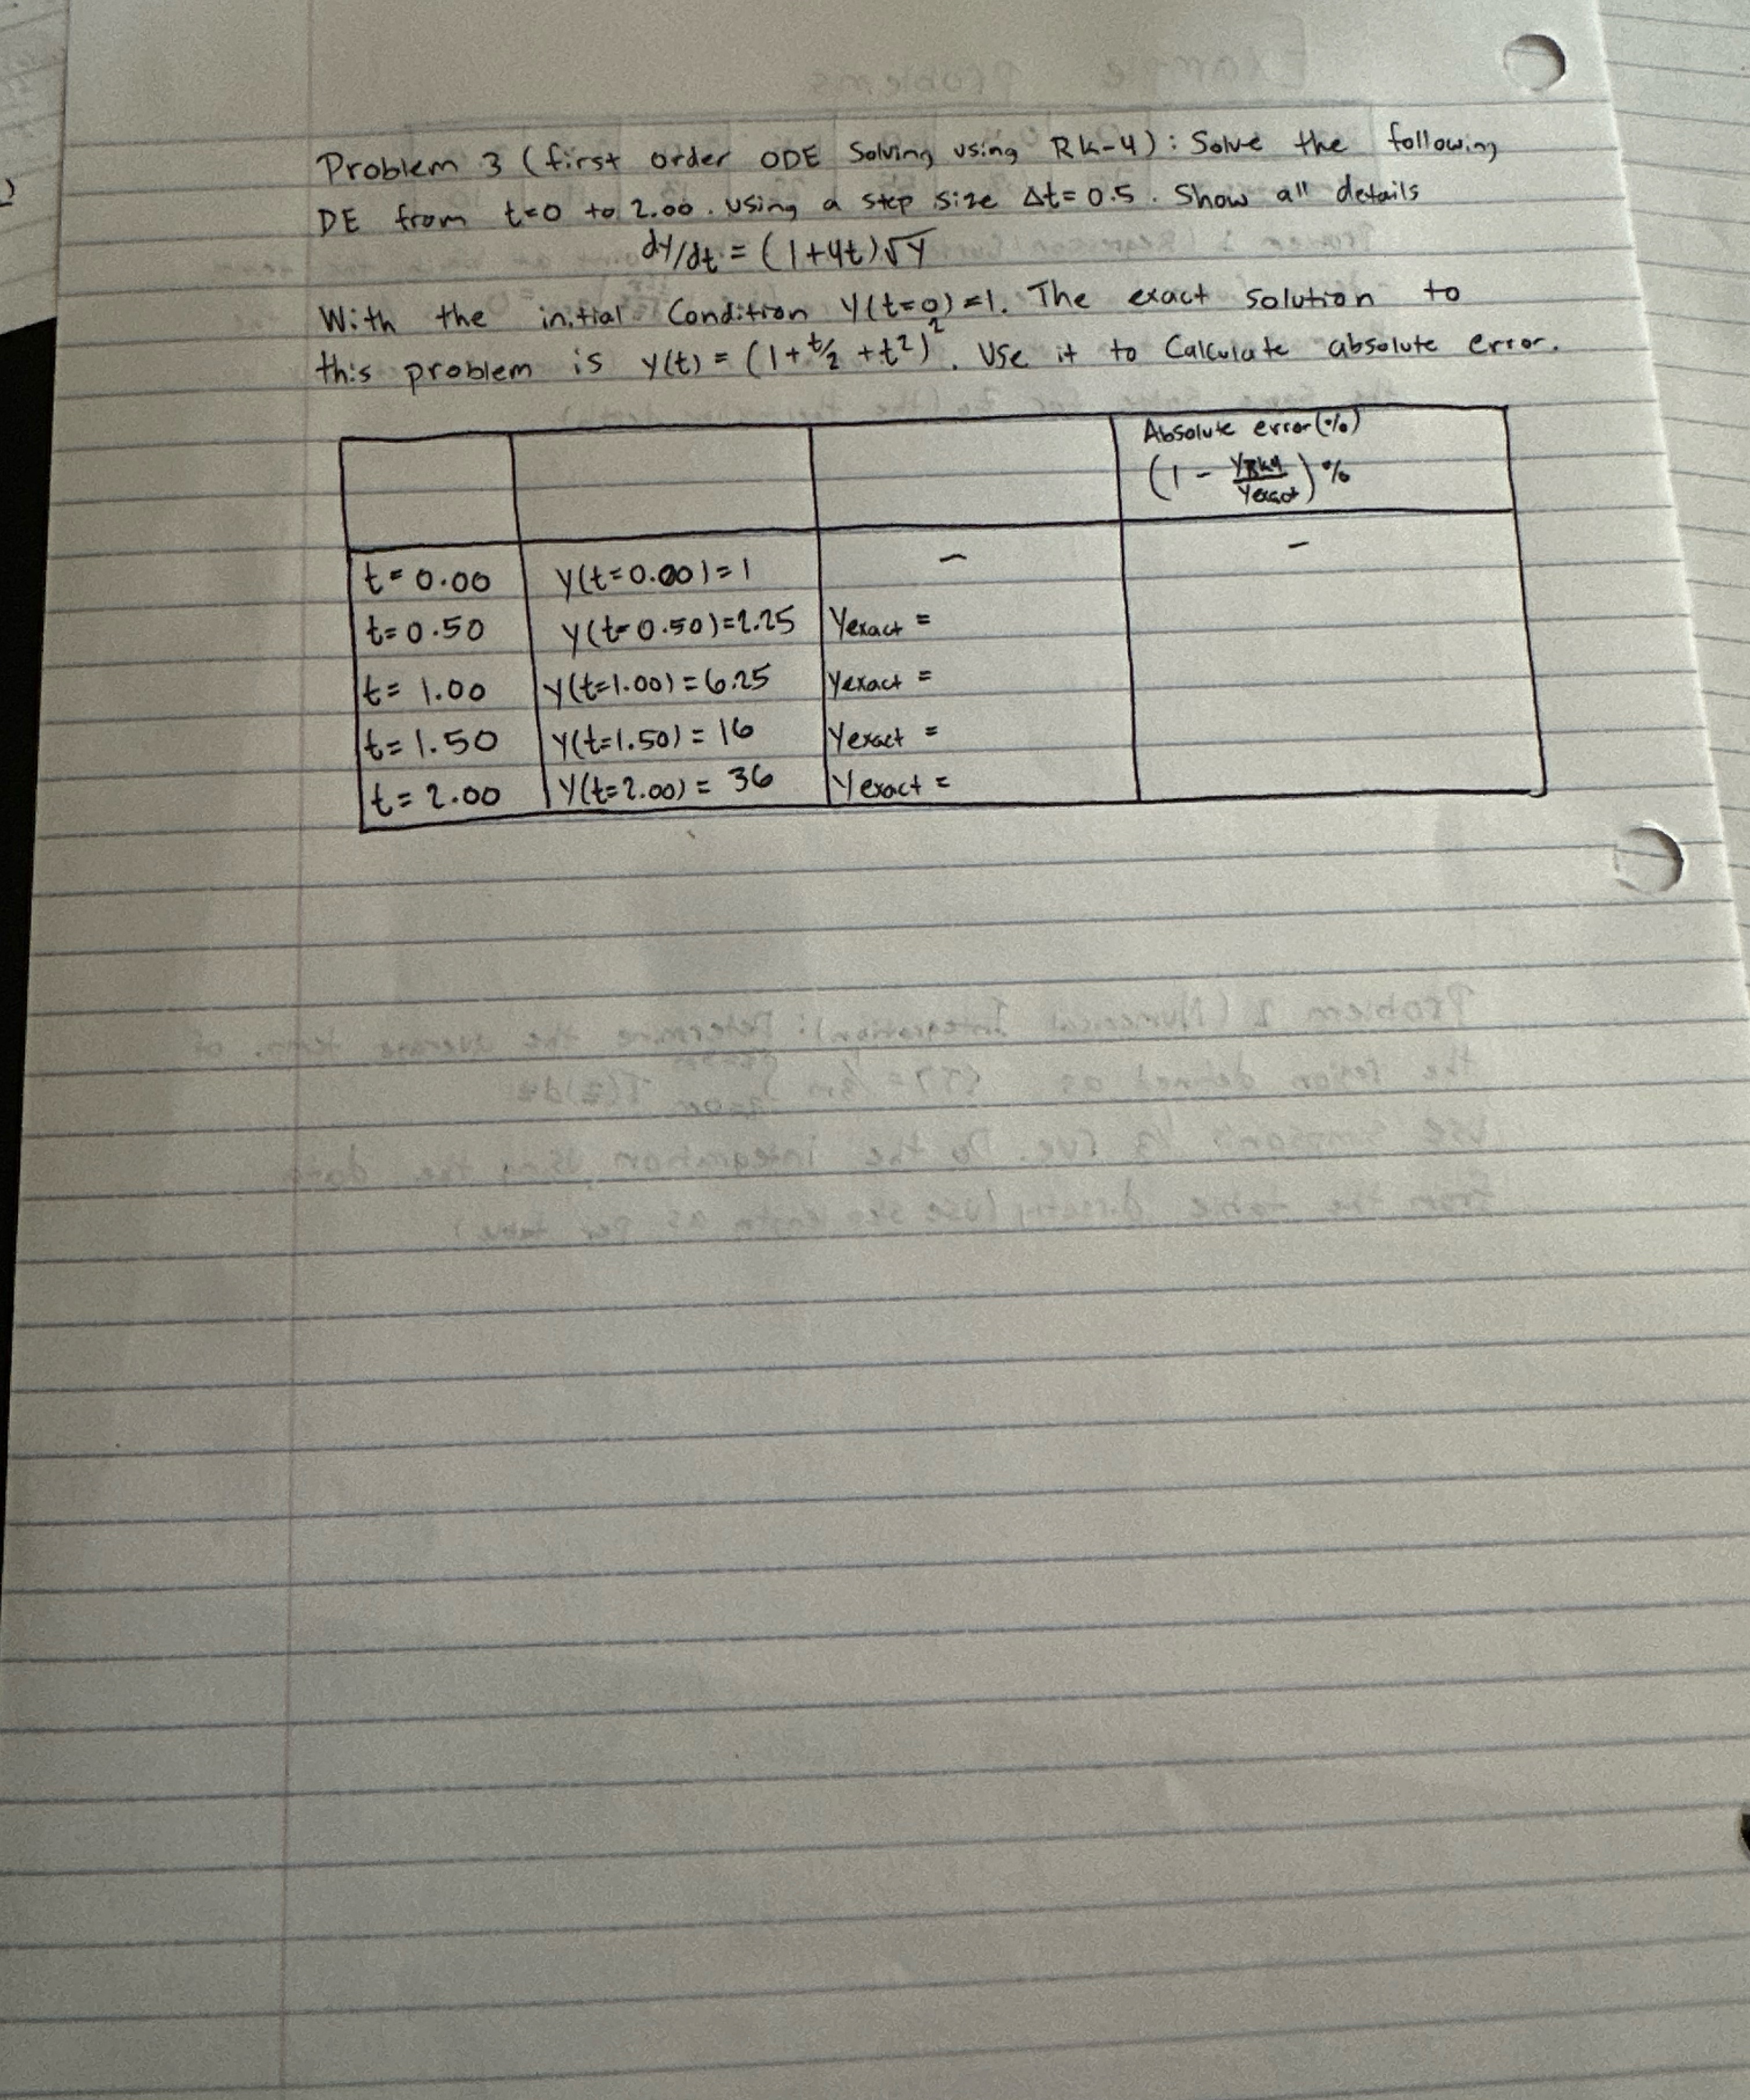 Problem 3 (first order ODE Solving using RK-4): Solve the following
DE from t=0 to 2.00. Using a step size Δt=0.5. Show all details
dy/dt = (1+4t)√y
With the initial Condition y(t=0)=1. The exact solution to
this problem is y(t) = (1+t/2+t²)². Use it to Calculate absolute error.
Absolute error(%)
(1 - yRK4/yexact)%
t=0.00 y(t=0.00)=1 - -
t=0.50 y(t=0.50)=2.25 Yexact =
t=1.00 y(t=1.00)=6.25 Yexact =
t=1.50 y(t=1.50)=16 Yexact =
t=2.00 y(t=2.00)=36 Yexact =